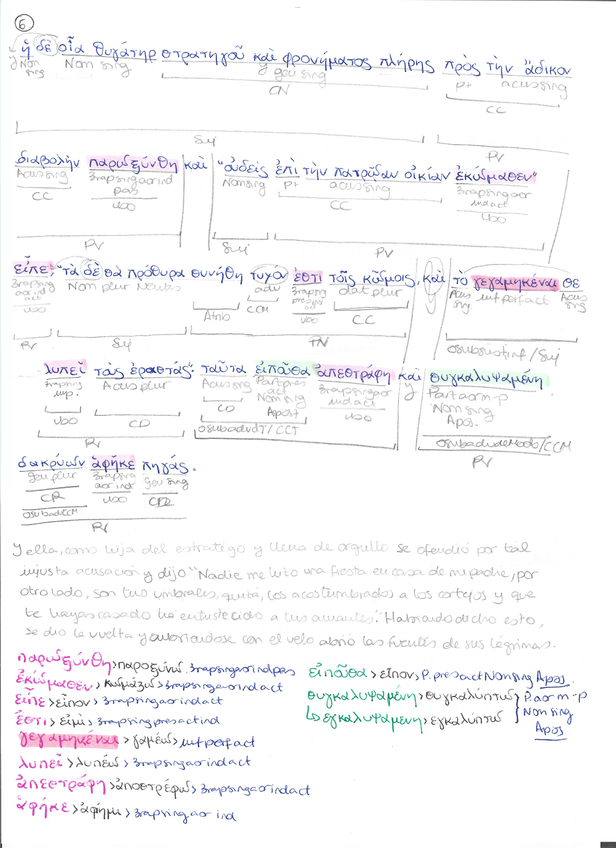 6
ἡ δὲ οἷα θυγάτηρ στρατηγοῦ καὶ φρονήματος πλήρης πρὸς τὴν ἄδικον
Nom sing Nom sing y gen sing p+ acus sing
CN CC
Suj PV
διαβολὴν παρωξύνθη καὶ "οὐδεὶς ἐπὶ τὴν πατρῴαν οἰκίαν ἐκώμασεν"
Acus sing 3rapsingaorind pas Nom sing p+ acus sing 3rapsingaor indact
CC VBO CC VBO
PV Suj PV
εἶπε· "τὰ δὲ σὰ πρόθυρα συνήθη τυχὸν ἐστι τοῖς κώμοις, καὶ τὸ γεγαμηκέναι σε
3rapsing aor ind act Nom plur Neutro adv 3rapsing dat plur Acus sing inf perfact Acus sing
VBO Atrib CCM VBO CC
PV Suj PN Osubsustinf/Suj
λυπεῖ τοὺς ἐραστάς". ταῦτα εἰποῦσα ἀπεστράφη καὶ συγκαλυψαμένη
3rapsing Acus plur Acus sing Part pres act Nom sing Apos+ 3rapsingaor ind act y Part aor m-p Nom sing Apos.
VBO CD CD VBO
PV OsubadvdT/CCT OsubadvdeModo/CCM
PV
δακρύων ἀφῆκε πηγάς.
gen plur 3rapsing aor ind gen sing
CR VBO
PV
Y ella, como hija del estratego y llena de orgullo se ofendió por tal
injusta acusación y dijo "Nadie metió una fiesta en casa de mi padre, por
otro lado, son tus umbrales, quizá, los acostumbrados a los cortejos y que
te hayas casado ha entristecido a tus amantes". Habiendo dicho esto,
se dio la vuelta y cubriéndose con el velo abrió las fuentes de sus lágrimas.
παρωξύνθη > παροξύνω > 3rapsingaorindpas
ἐκώμασεν > κωμάζω > 3rapsingaorindact
εἶπε > εἶπον > 3rapsingaorindact
ἐστι > εἰμί > 3rapsingpresactind
γεγαμηκέναι > γαμέω > inf perfact
λυπεῖ > λυπέω > 3rapsingaorindact
ἀπεστράφη > ἀποστρέφω > 3rapsingaorindact
ἀφῆκε > ἀφίημι > 3rapsingaor ind
εἰποῦσα > εἶπον > P. pres act Nom Sing Apos.
συγκαλυψαμένη > συγκαλύπτω
↳ ἐγκαλυψαμένη > ἐγκαλύπτω
P. aor m-p
Nom sing
Apos